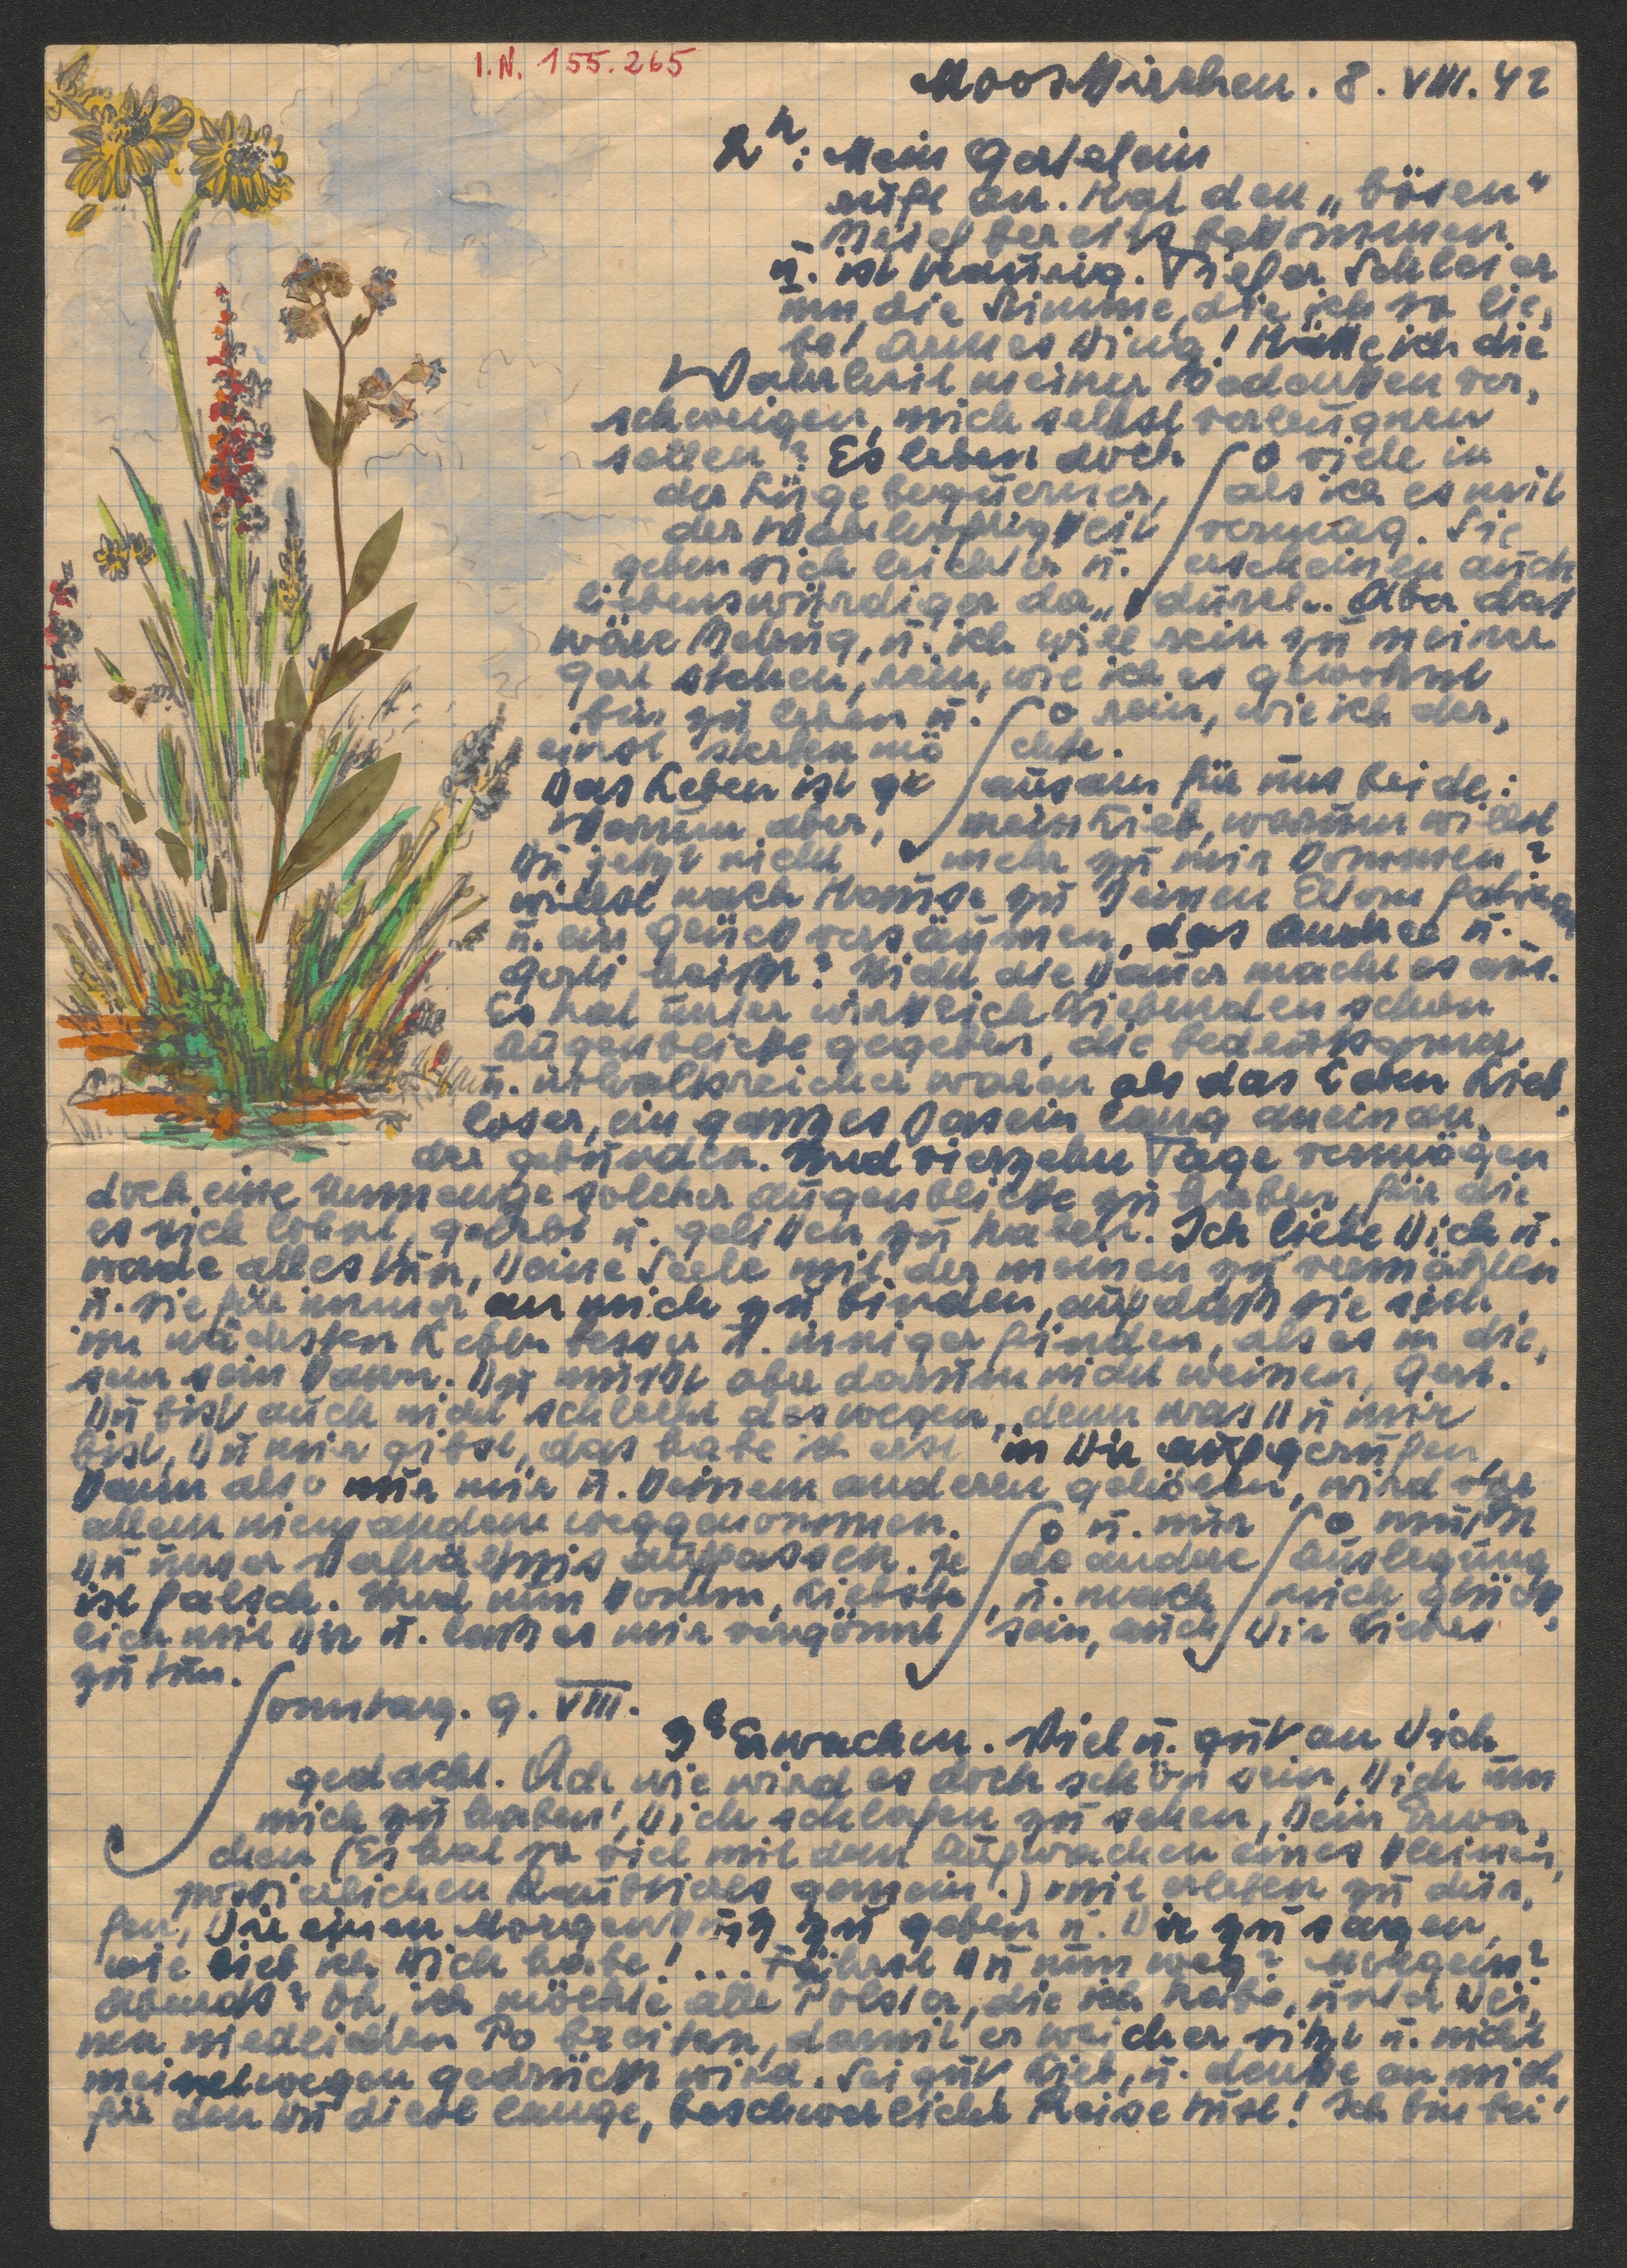 I.N. 155.265
Mooskirchen. 8. VIII. 42
2h: Mein Gerlelein
ruft an. Hat den „bösen"
Brief bereits bekommen
u. ist traurig. Tiefer Schleier
um die Stimme, die ich so lie,
be! Armes Ding! Hätte ich die
Wahrheit meiner Bedenken ver,
schweigen, mich selbst verleugnen
sollen? Es leben doch so viele in
der Lüge bequemer, als ich es mit
der Wahrhaftigkeit vermag. Sie
geben sich leichter u. erscheinen auch
liebenswürdiger dadurch. Aber das
wäre Betrug, u. ich will rein zu meiner
Gerl stehen, rein, wie ich es gewohnt
bin zu leben u. so rein, wie ich der,
einst sterben möchte.
Das Leben ist grausam für uns beide:
Warum aber, mein Lieb, warum willst
Du jetzt nicht mehr zu mir kommen?
willst nach Hause zu Deinen Eltern fahren
u. ein Glück versäumen, das Andree u.
Gerli heißt? Nicht die Dauer macht es aus.
Es hat unter wirklich Liebenden schon
Augenblicke gegeben, die bedeutsamer
u. inhaltsreicher waren als das Leben Lieb,
loser, ein ganzes Dasein lang aneinan,
der gebunden. Und vierzehn Tage vermögen
doch eine Unmenge solcher Augenblicke zu haben, für die
es sich lohnt, gelebt u. gelitten zu haben. Ich liebe Dich u.
werde alles tun, Deine Seele mit der meinen zu vermählen
u. sie für immer an mich zu binden, auf daß sie sich
im nächsten Leben besser u. inniger finden, als es in die,
sem sein kann. Du mußt aber darum nicht weinen, Gerl.
Du bist auch nicht schlecht deswegen, denn was Du mir
bist, Du mir gibst, das habe ich erst in Dir aufgerufen,
kann also nur mir u. keinem anderen gehören, wird vor
allem niemandem weggenommen. So u. nur so mußt
Du unser Verhältnis auffassen. Jede andere Auslegung
ist falsch. Und nun komm, Liebste, u. mach mich glück,
lich mit Dir u. laß es mir vergönnt sein, auch Dir Liebes
zu tun.
Sonntag. 9. VIII.
3h Erwachen. Viel u. gut an Dich
gedacht. Ach wie wird es doch schön sein, Dich um
mich zu haben!, Dich schlafen zu sehen, Dein Erwa,
chen (Es hat so viel mit dem Aufwachen eines kleinen,
possierlichen Raubtieres gemein.) mit erleben zu dür,
fen, Dir einen Morgenkuß zu geben u. Dir zu sagen,
wie lieb ich Dich habe! ... Fährst Du nun weg? Morgen?
abends? Oh, ich möchte alle Polster, die ich habe, unter Dei,
nen niedlichen Po breiten, damit er weicher sitzt u. nicht
meinetwegen gedrückt wird. Sei gut, Lieb, u. denke an mich
für den Du diese lange, beschwerliche Reise tust! Ich bin bei